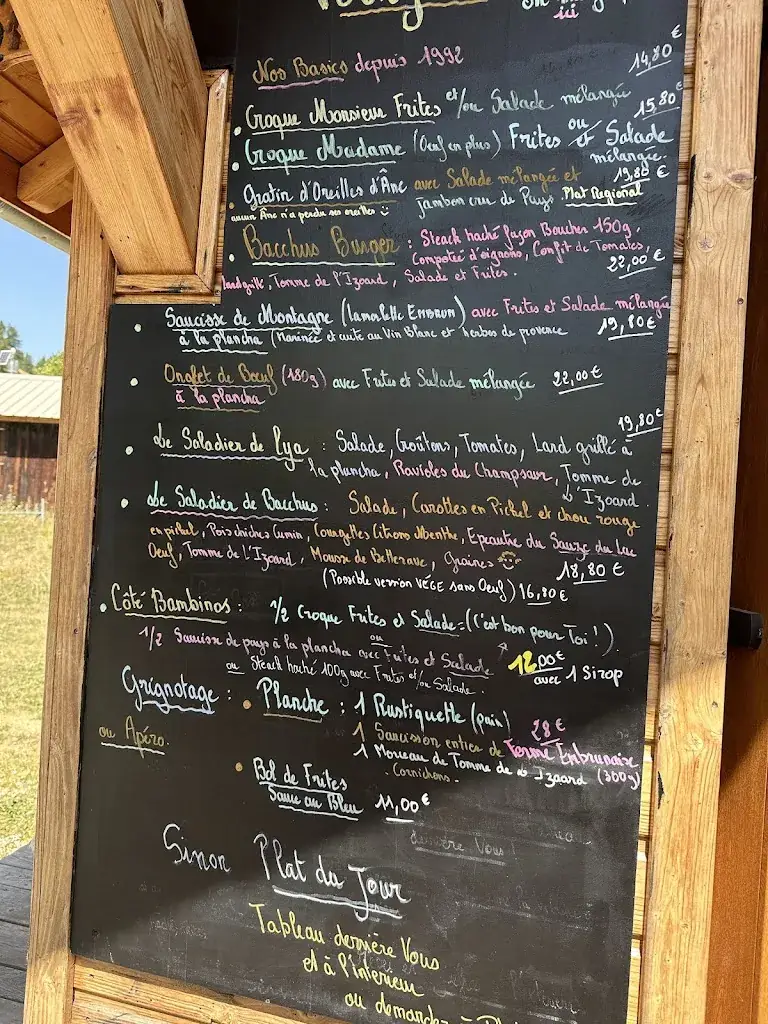 Nos Basics depuis 1992
14,80 €
• Croque Monsieur Frites et/ou Salade mélangée
15,80 €
• Croque Madame (Oeuf en plus) Frites ou/et Salade mélangée.
• Gratin d'Oreilles d'Âne avec Salade mélangée et 19,80 €
aucun Âne n'a perdu ses oreilles jambon cru de Pays Plat Regional
• Bacchus Burger : Steack haché façon Boucher 150g,
Compotée d'oignons, Confit de Tomates,
22,00 €
lard grillé, Tomme de l'Izoard, Salade et Frites.
• Saucisse de Montagne (Lamorlette EMBRUN) avec Frites et Salade mélangée
à la plancha (Marinée et cuite au Vin Blanc et herbes de provence 19,80 €
• Onglet de Boeuf (180g) avec Frites et Salade mélangée 22,00 €
à la plancha
19,80 €
• Le Saladier de Lya : Salade, Croûtons, Tomates, Lard grillé à
la plancha, Ravioles du Champsaur, Tomme de
l'Izoard.
• Le Saladier de Bacchus : Salade, Carottes en Pickel et chou rouge
en pickel, Pois chiches Cumin, Courgettes Citrons Menthe, Epeautre du Sauze du Lac
Oeuf, Tomme de l'Izoard, Mousse de Betterave, Graines 18,80 €
(Possible version VÉGÉ sans Oeuf) 16,80 €
• Côté Bambinos : 1/2 Croque Frites et Salade = (C'est bon pour Toi !)
ou
1/2 Saucisse de pays à la plancha avec Frites et Salade 12,00 €
ou Steack haché 100g avec Frites et/ou Salade. avec 1 Sirop
Grignotage : • Planche : 1 Rustiquette (pain) 28 €
ou Apéro. 1 Saucisson entier de Ferme Embrunaise
1 Morceau de Tomme de l'Izoard (300g)
. Cornichons.
• Bol de Frites
Sauce au Bleu 11,00 €
derrière Vous !
Sinon Plat du Jour
Tableau derrière Vous
et à l'interieur
ou demandez